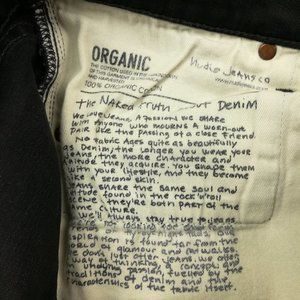 ORGANIC
THE COTTON USED IN THE
OF THIS GARMENT IS
AND HARVESTED
100% ORGANIC COTTON
Nudie Jeans co
The Naked Truth About Denim
We Love Jeans. A passion we share
with anyone who mourns a worn-out
pair like the passing of a close friend.
No fabric ages quite as beautifully
as denim, the longer you wear your
jeans, the more character and
attitude they acquire. You shape them
with your lifestyle, and they become
second skin.
Jeans share the same soul and
attitude found in the rock'n'roll
they're both part of the
same culture.
We'll always stay true to jeans.
not looking for
trends of
inspiration is found far from the
world of glamour and catwalks.
We don't just offer jeans, we offer
a way of thinking, a concept, and
an undying passion, fuelled by the
traditions of denim and the
characteristics of the
fabric itself.